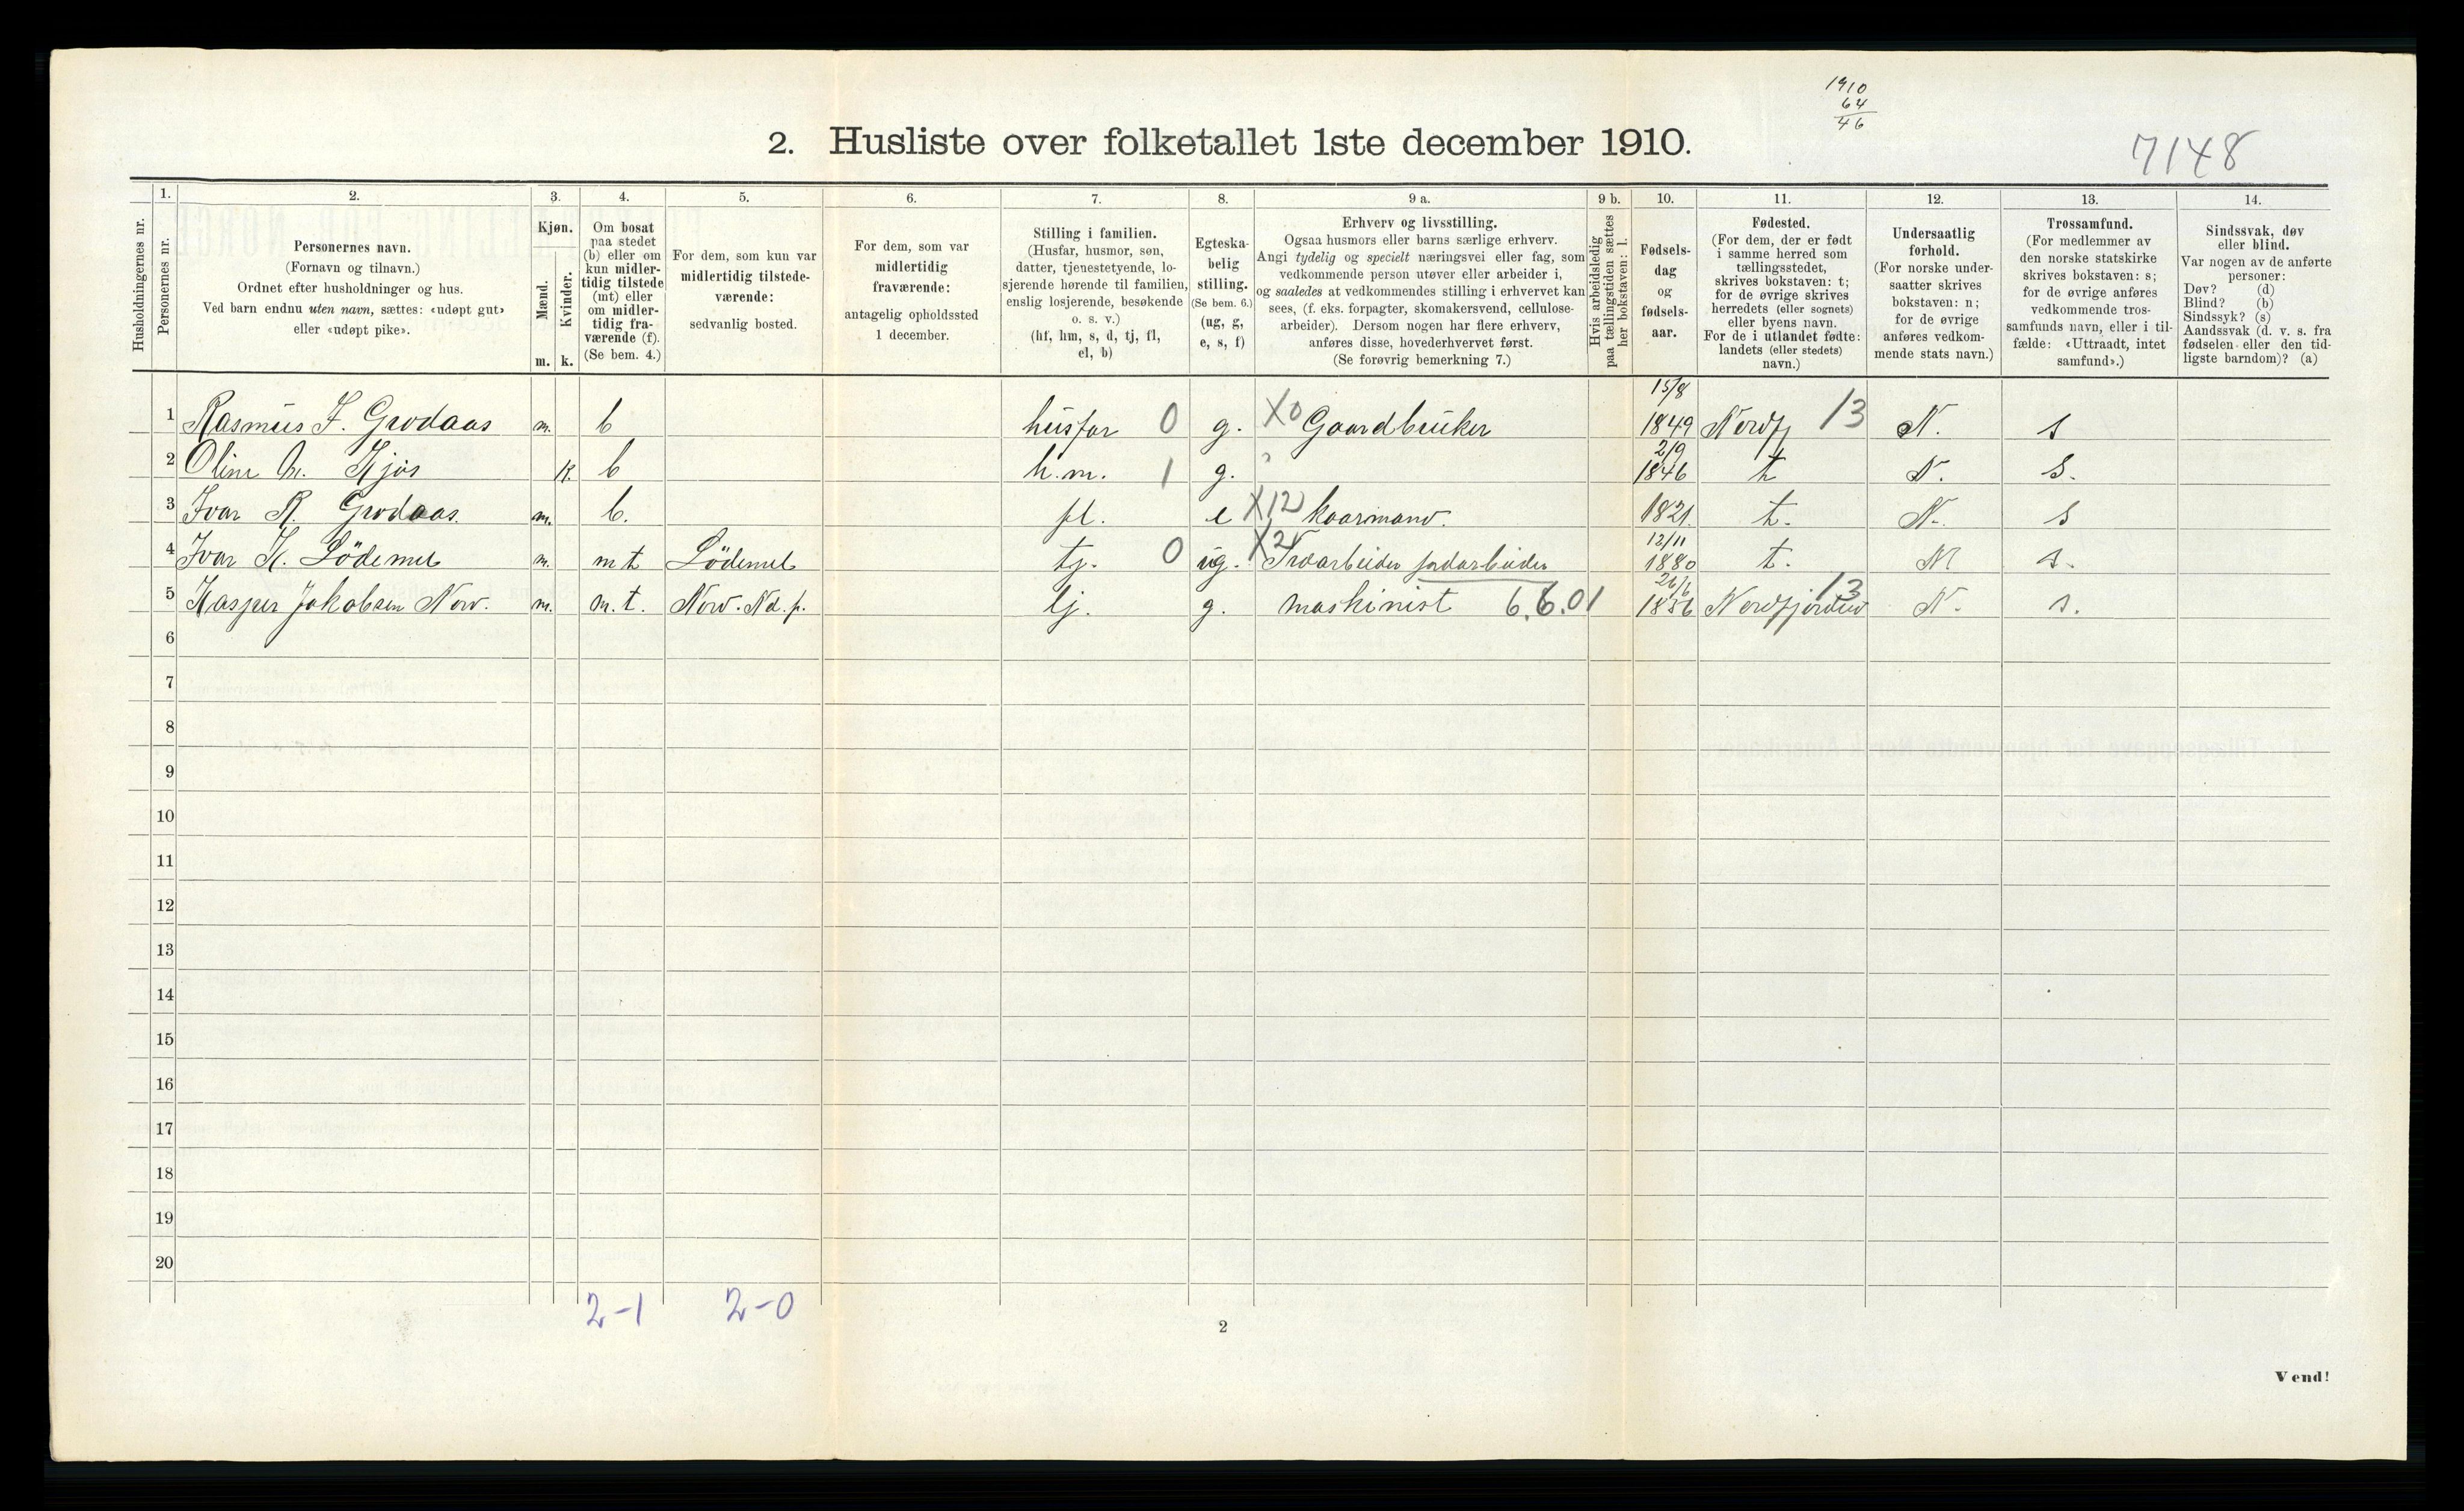 1910
64
46
2. Husliste over folketallet 1ste december 1910.
7148
Husholdningernes nr.
1.
Personernes nr.
2.
Personernes navn.
(Fornavn og tilnavn.)
Ordnet efter husholdninger og hus.
Ved barn endnu uten navn, sættes: «udøpt gut»
eller «udøpt pike».
3.
Kjøn.
Mænd.
Kvinder.
m. k.
4.
Om bosat
paa stedet
(b) eller om
kun midler-
tidig tilstede
(mt) eller
om midler-
tidig fra-
værende (f).
(Se bem. 4.)
5.
For dem, som kun var
midlertidig tilstede-
værende:
sedvanlig bosted.
6.
For dem, som var
midlertidig
fraværende:
antagelig opholdssted
1 december.
7.
Stilling i familien.
(Husfar, husmor, søn,
datter, tjenestetyende, lo-
sjerende hørende til familien,
enslig losjerende, besøkende
o. s. v.)
(hf, hm, s, d, tj, fl,
el, b)
8.
Egteska-
belig
stilling.
(Se bem. 6.)
(ug, g,
e, s, f)
9 a.
Erhverv og livsstilling.
Ogsaa husmors eller barns særlige erhverv.
Angi tydelig og specielt næringsvei eller fag, som
vedkommende person utøver eller arbeider i,
og saaledes at vedkommendes stilling i erhvervet kan
sees, (f. eks. forpagter, skomakersvend, cellulose-
arbeider). Dersom nogen har flere erhverv,
anføres disse, hovederhvervet først.
(Se forøvrig bemerkning 7.)
9 b.
Hvis arbeidsledig
paa tællingstiden sættes
her bokstaven: l.
10.
Fødsels-
dag
og
fødsels-
aar.
11.
Fødested.
(For dem, der er født
i samme herred som
tællingsstedet,
skrives bokstaven: t;
for de øvrige skrives
herredets (eller sognets)
eller byens navn.
For de i utlandet fødte:
landets (eller stedets)
navn.)
12.
Undersaatlig
forhold.
(For norske under-
saatter skrives
bokstaven: n;
for de øvrige
anføres vedkom-
mende stats navn.)
13.
Trossamfund.
(For medlemmer av
den norske statskirke
skrives bokstaven: s;
for de øvrige anføres
vedkommende tros-
samfunds navn, eller i til-
fælde: «Uttraadt, intet
samfund».)
14.
Sindssvak, døv
eller blind.
Var nogen av de anførte
personer:
Døv? (d)
Blind? (b)
Sindssyk? (s)
Aandssvak (d. v. s. fra
fødselen eller den tid-
ligste barndom)? (a)
1 Rasmus I. Grodaas m. b husfar 0 g. X0 Gaardbruker 15/8 1849 Nordfj 13 N. s
2 Oline M. Kjøs k. b h.m. 1 g. 2/9 1846 t N. s.
3 Ivar R. Grodaas m. b. fl. e X12 kaarmand. 1821. t. N. s
4 Ivar K. Lödemel m. mt Lödemel tj. 0 ug. X2 jordarbeider 12/11 1880 t. N s.
5 Kasper Jakobsen Nor. m. m.t. Nor. Nd.f. lj. g. maskinist 6.6.01 26/6 1856 Nordfjordeid 13 N. s.
6
7
8
9
10
11
12
13
14
15
16
17
18
19
20
2-1 2-0
2
Vend!